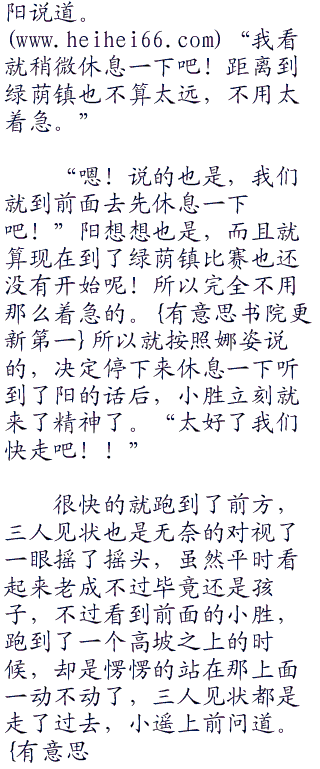 阳说道。
(www.heihei66.com)“我看
就稍微休息一下吧！距离到
绿荫镇也不算太远，不用太
着急。”
“嗯！说的也是，我们
就到前面去先休息一下
吧！”阳想想也是，而且就
算现在到了绿荫镇比赛也还
没有开始呢！所以完全不用
那么着急的。{有意思书院更
新第一}所以就按照娜姿说
的，决定停下来休息一下听
到了阳的话后，小胜立刻就
来了精神了。“太好了我们
快走吧！！”
很快的就跑到了前方，
三人见状也是无奈的对视了
一眼摇了摇头，虽然平时看
起来老成不过毕竟还是孩
子，不过看到前面的小胜，
跑到了一个高坡之上的时
候，却是愣愣的站在那上面
一动不动了，三人见状都是
走了过去，小遥上前问道。
{有意思